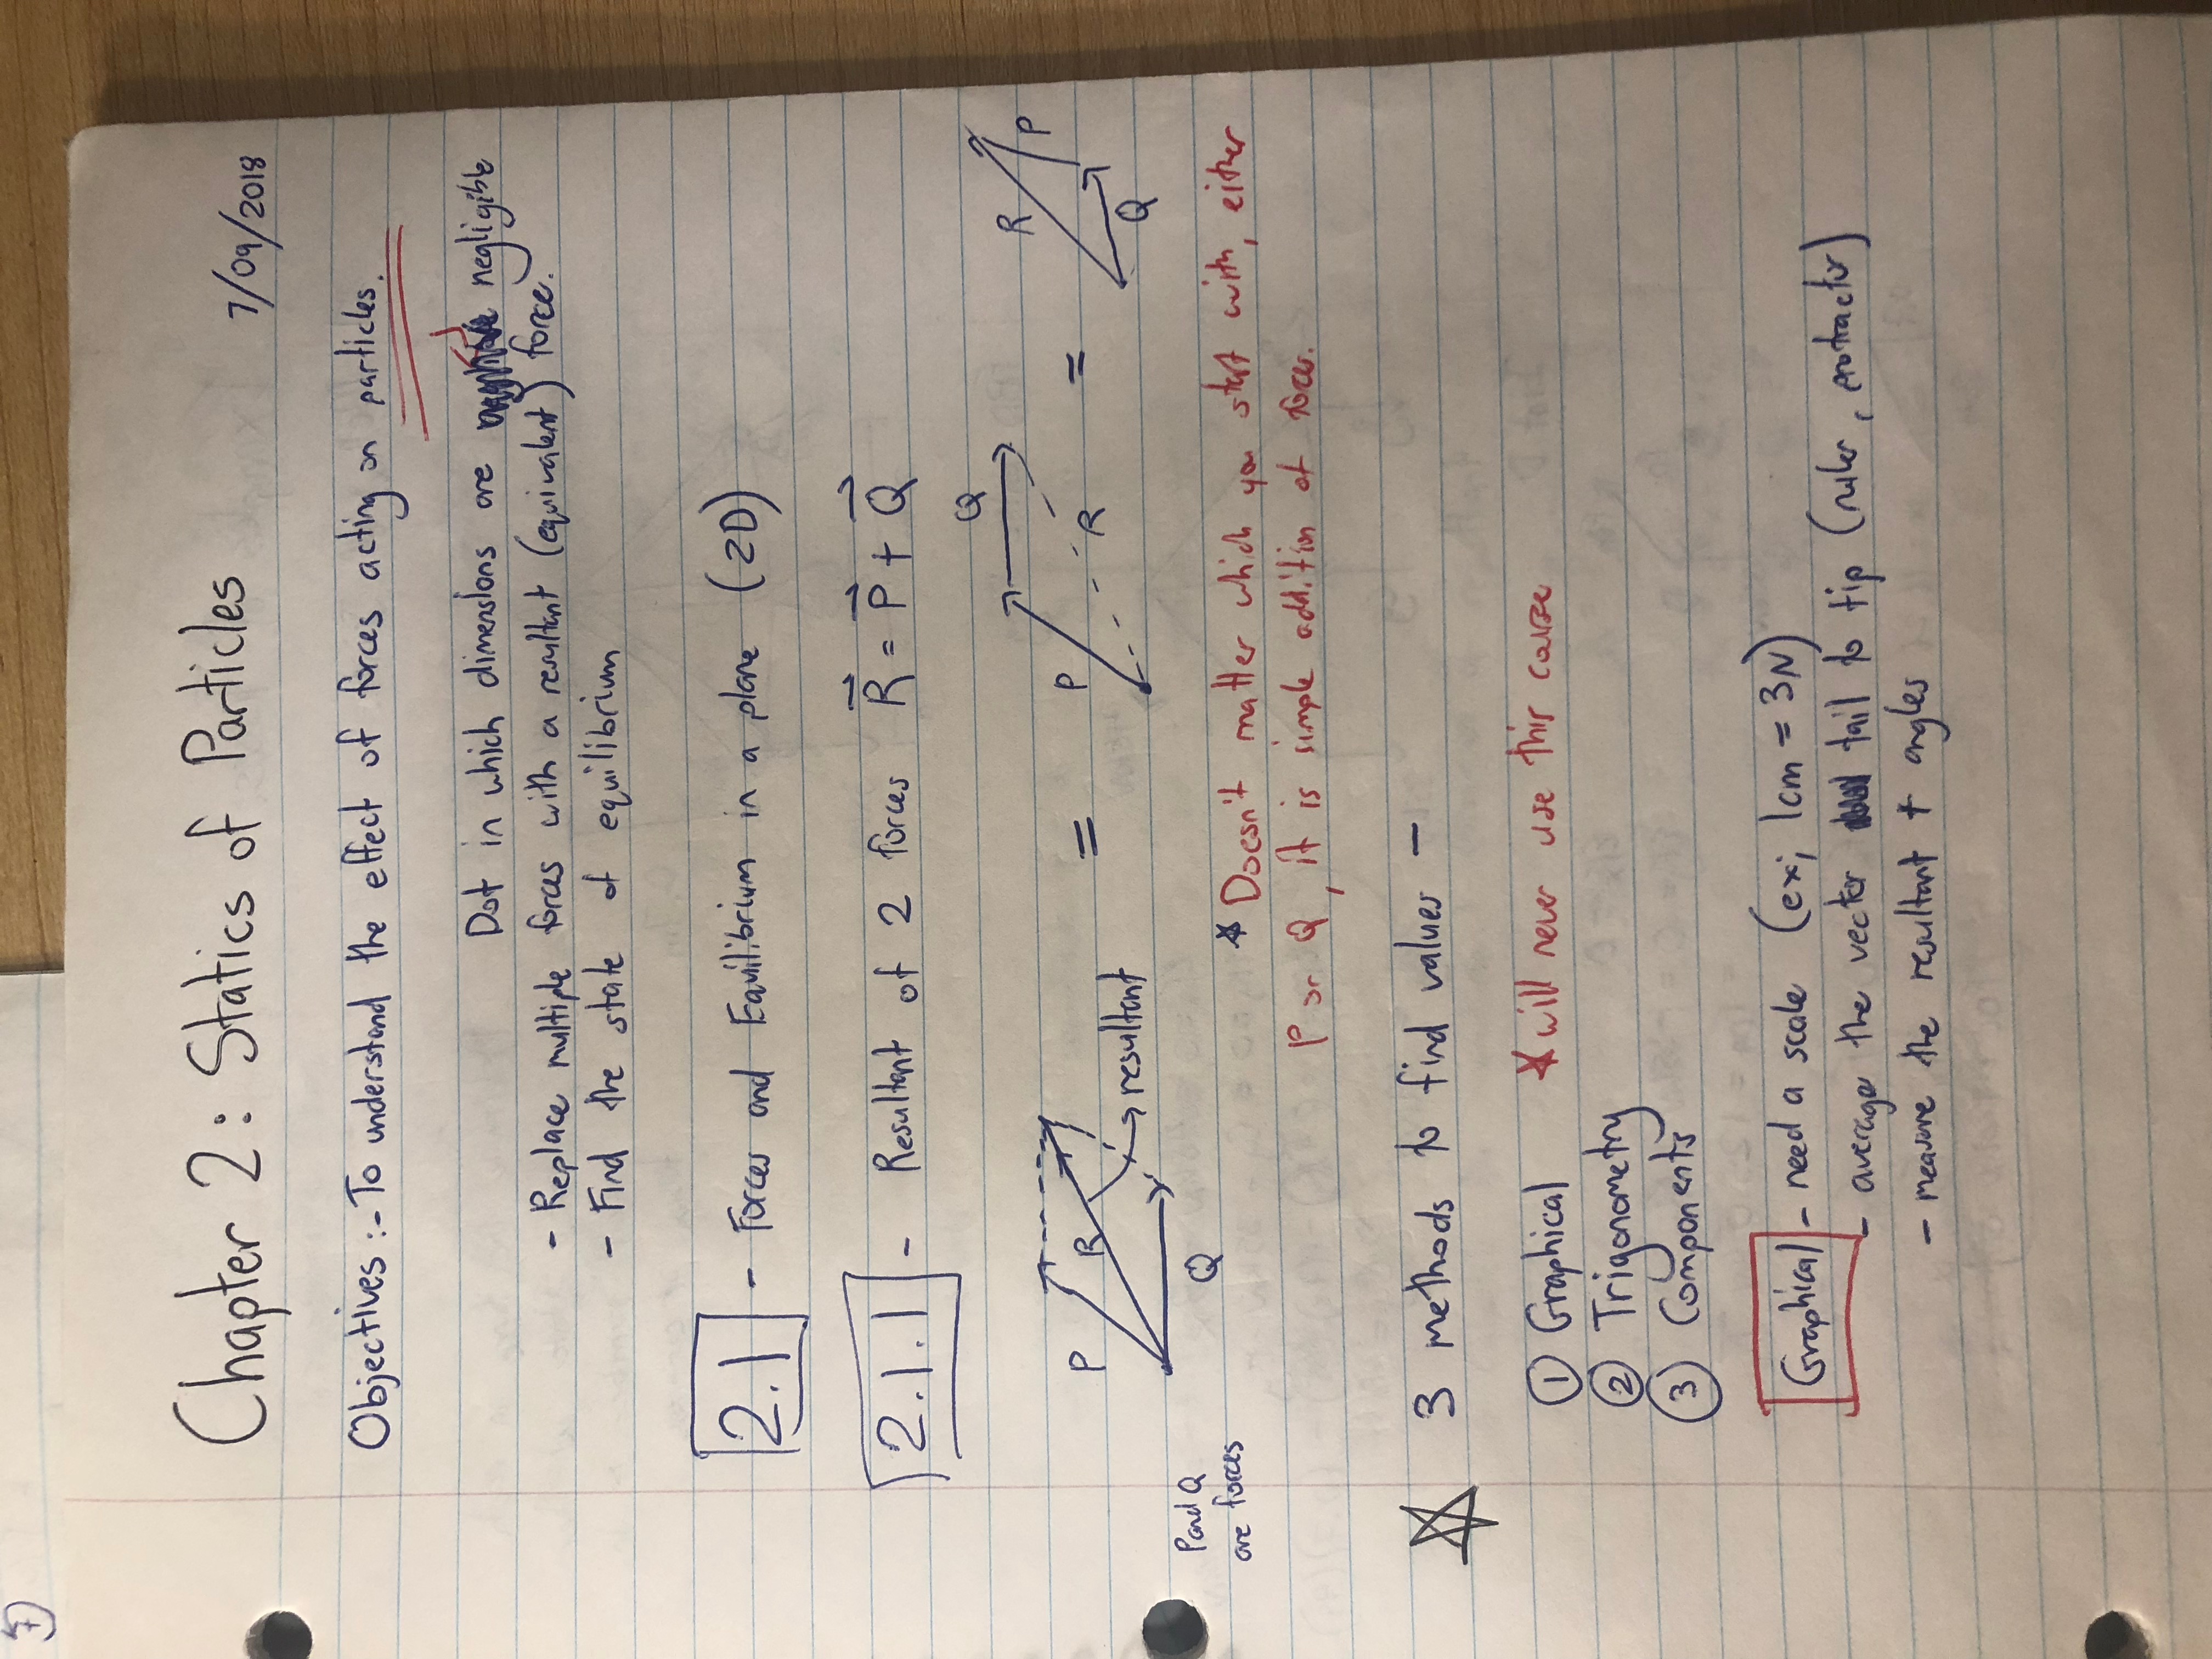 7/09/2018
Chapter 2: Statics of Particles
Objectives :- To understand the effect of forces acting on particles.
Dot in which dimensions are negligible
- Replace multiple forces with a resultant (equivalent) force.
- Find the state of equilibrium
2.1 - Forces and Equilibrium in a plane (2D)
2.1.1 - Resultant of 2 forces R⃗ = P⃗ + Q⃗
P R Q resultant = P Q R = R P Q
P and Q
are forces
* Doesn't matter which you start with, either
P or Q, it is simple addition of forces.
☆ 3 methods to find values -
① Graphical * will never use this course
② Trigonometry
③ Components
Graphical - need a scale (ex; 1cm = 3N)
- average the vector tail to tip (ruler, protractor)
- measure the resultant + angles